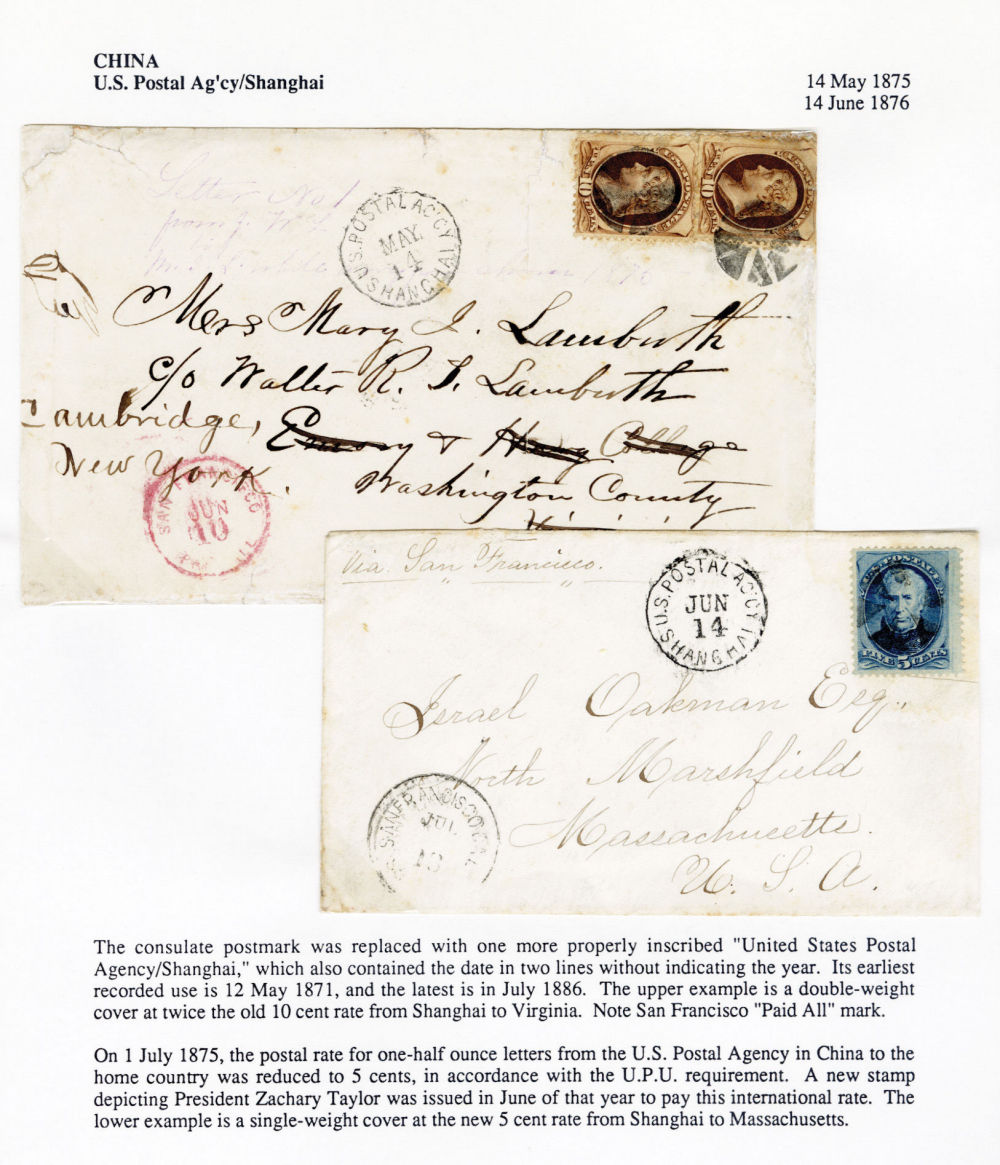 CHINA
U.S. Postal Ag'cy/Shanghai
14 May 1875
14 June 1876
Letter No 1
from J. W.
1876
U.S. POSTAL AG'CY
MAY.
14
SHANGHAI
Mrs Mary I. Lambuth
c/o Walter R. Lambuth
Cambridge,
Emory & Henry College
New York.
Washington County
SAN FRANCISCO
JUN
10
PAID ALL
Via San Francisco.
U.S. POSTAL AG'CY
JUN
14
SHANGHAI
U.S. POSTAGE
FIVE 5 CENTS
Israel Oakman Esq.,
North Marshfield
Massachusetts.
U. S. A.
SAN FRANCISCO CAL
JUL
13
The consulate postmark was replaced with one more properly inscribed "United States Postal
Agency/Shanghai," which also contained the date in two lines without indicating the year. Its earliest
recorded use is 12 May 1871, and the latest is in July 1886. The upper example is a double-weight
cover at twice the old 10 cent rate from Shanghai to Virginia. Note San Francisco "Paid All" mark.
On 1 July 1875, the postal rate for one-half ounce letters from the U.S. Postal Agency in China to the
home country was reduced to 5 cents, in accordance with the U.P.U. requirement. A new stamp
depicting President Zachary Taylor was issued in June of that year to pay this international rate. The
lower example is a single-weight cover at the new 5 cent rate from Shanghai to Massachusetts.